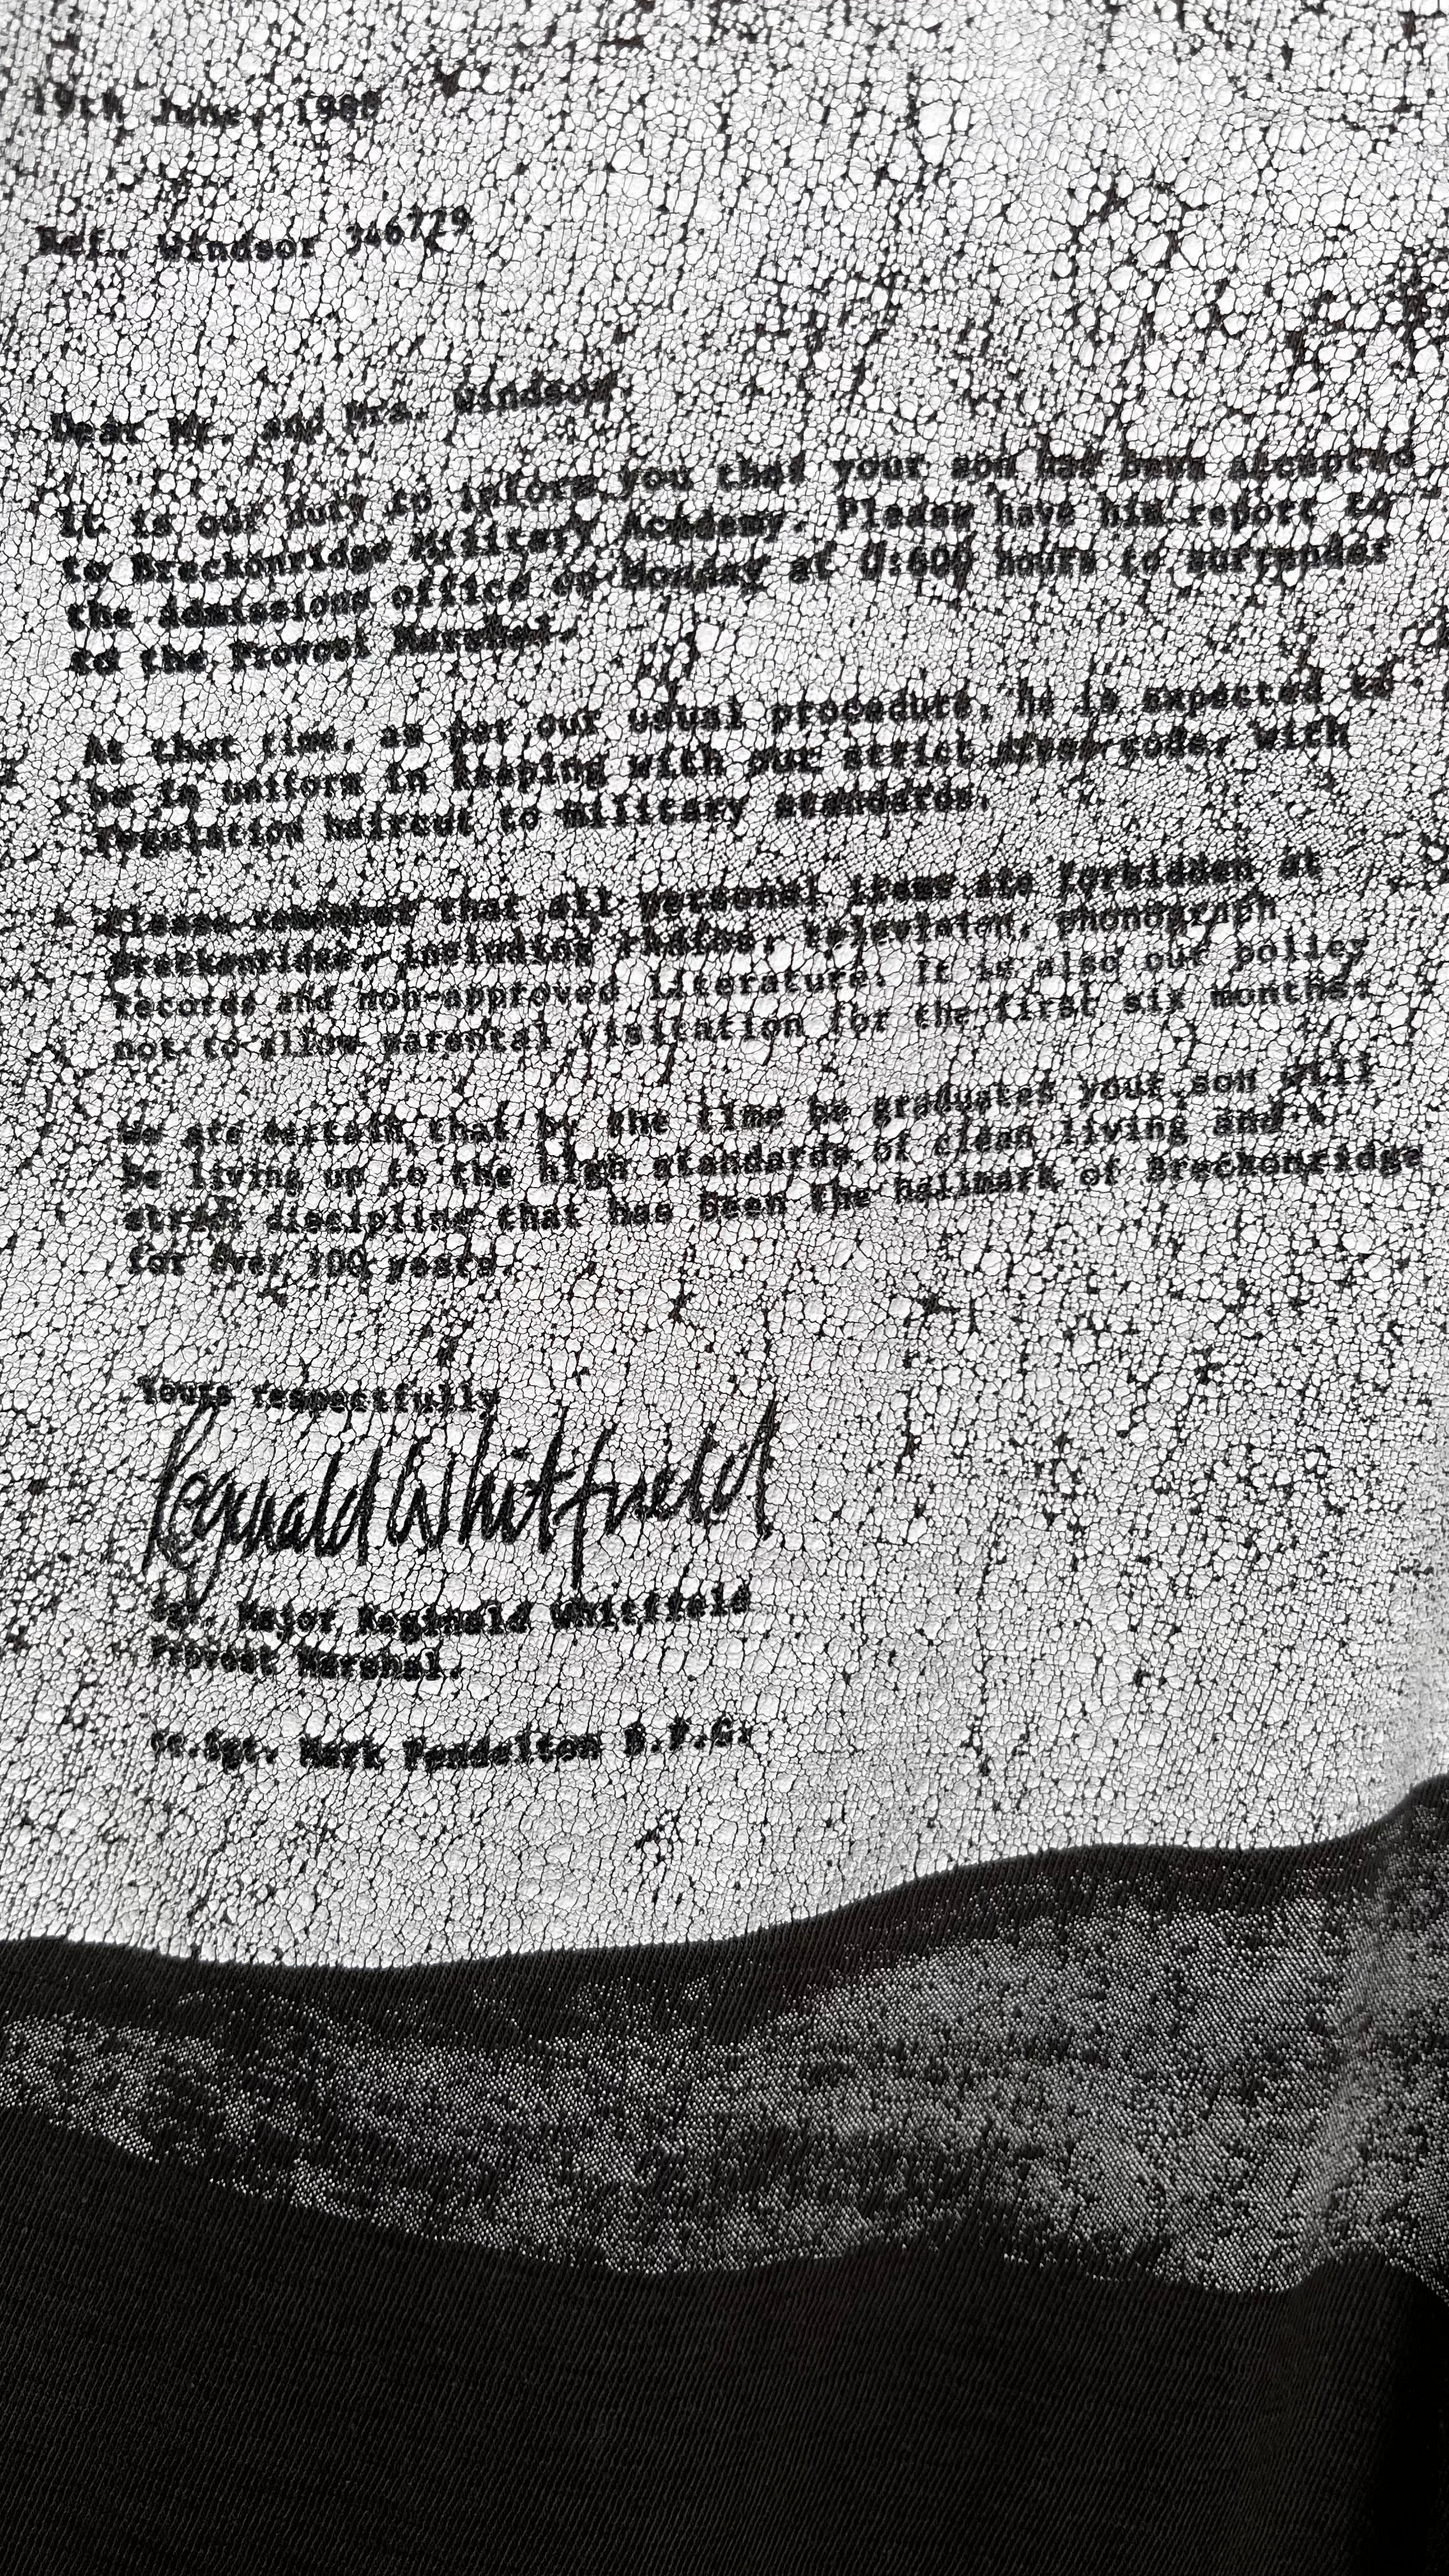 19th June, 1988
Ref. Windsor 346729
Dear Mr. and Mrs. Windsor,
It is our duty to inform you that your son has been accepted
to Breckonridge Military Academy. Please have him report to
the admissions office on Monday at 0:600 hours to surrender
to the Provost Marshal.
At that time, as per our usual procedure, he is expected to
be in uniform in keeping with our strict code, with
regulation haircut to military standards.
Please remember that all personal items are forbidden at
Breckonridge, including radios, television, phonograph
records and non-approved literature. It is also our policy
not to allow parental visitation for the first six months.
We are certain that by the time he graduates your son will
be living up to the high standards of clean living and
strict discipline that has been the hallmark of Breckonridge
for over 100 years.
Yours respectfully
Reginald Whitfield
Sgt. Major Reginald Whitfield
Provost Marshal.
cc.Sgt. Mark Pendelton